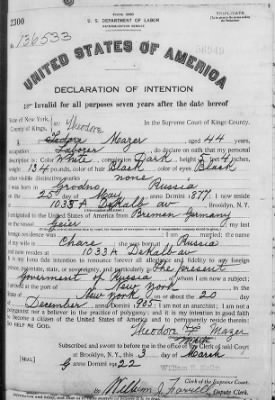 2300
U. S. DEPARTMENT OF LABOR
No 136533
UNITED STATES OF AMERICA
DECLARATION OF INTENTION
Invalid for all purposes seven years after the date hereof
State of New York,
County of Kings,
In the Supreme Court of Kings County.
Theodore
Mazer, aged 44 years,
occupation Laborer, do declare on oath that my personal
description is: Color White, complexion Dark, height 5 feet 4 inches,
weight 134 pounds, color of hair Black, color of eyes Black
other visible distinctive marks none
born in Grodno Russia
on the 25 day of May, anno Domini 1877; I now reside
at 1033A DeKalb av Brooklyn, N. Y.
I emigrated to the United States of America from Bremen Germany
on the vessel; my last
foreign residence was; I am married; the name
of my wife is Chare; she was born at Russia
and now resides at 1033A DeKalb av
It is my bona fide intention to renounce forever all allegiance and fidelity to any foreign
prince, potentate, state, or sovereignty, and particularly to The present
Government of Russia, of whom I am now a subject;
I arrived at the port of New York, in the
State of New York, on or about the 20 day
of December, anno Domini 1905; I am not an anarchist; I am not a
polygamist nor a believer in the practice of polygamy; and it is my intention in good faith
to become a citizen of the United States of America and to permanently reside therein:
SO HELP ME GOD.
Theodore Mazer
Subscribed and sworn to before me in the office of the Clerk of said Court
at Brooklyn, N. Y., this 3 day of March
[SEAL] anno Domini 1922
Clerk of the Supreme Court.
By William J.